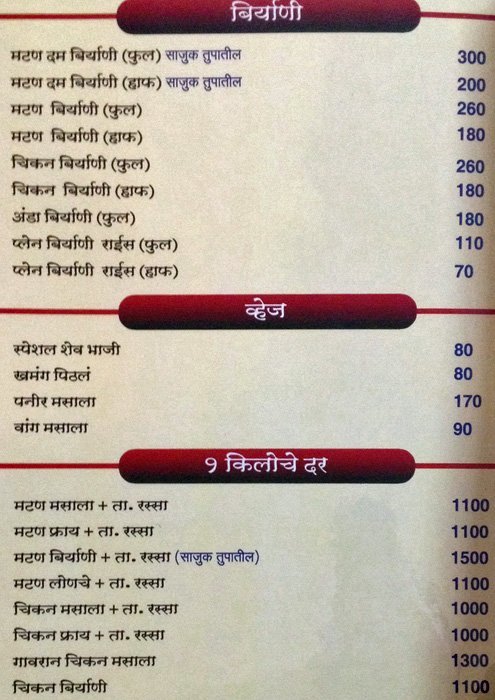 बिर्याणी
मटण दम बिर्याणी (फुल) साजुक तुपातील 300
मटण दम बिर्याणी (हाफ) साजुक तुपातील 200
मटण बिर्याणी (फुल) 260
मटण बिर्याणी (हाफ) 180
चिकन बिर्याणी (फुल) 260
चिकन बिर्याणी (हाफ) 180
अंडा बिर्याणी (फुल) 180
प्लेन बिर्याणी राईस (फुल) 110
प्लेन बिर्याणी राईस (हाफ) 70
व्हेज
स्पेशल शेव भाजी 80
खमंग पिठलं 80
पनीर मसाला 170
वांग मसाला 90
१ किलोचे दर
मटण मसाला + ता. रस्सा 1100
मटण फ्राय + ता. रस्सा 1100
मटण बिर्याणी + ता. रस्सा (साजुक तुपातील) 1500
मटण लोणचे + ता. रस्सा 1100
चिकन मसाला + ता. रस्सा 1000
चिकन फ्राय + ता. रस्सा 1000
गावरान चिकन मसाला 1300
चिकन बिर्याणी 1100